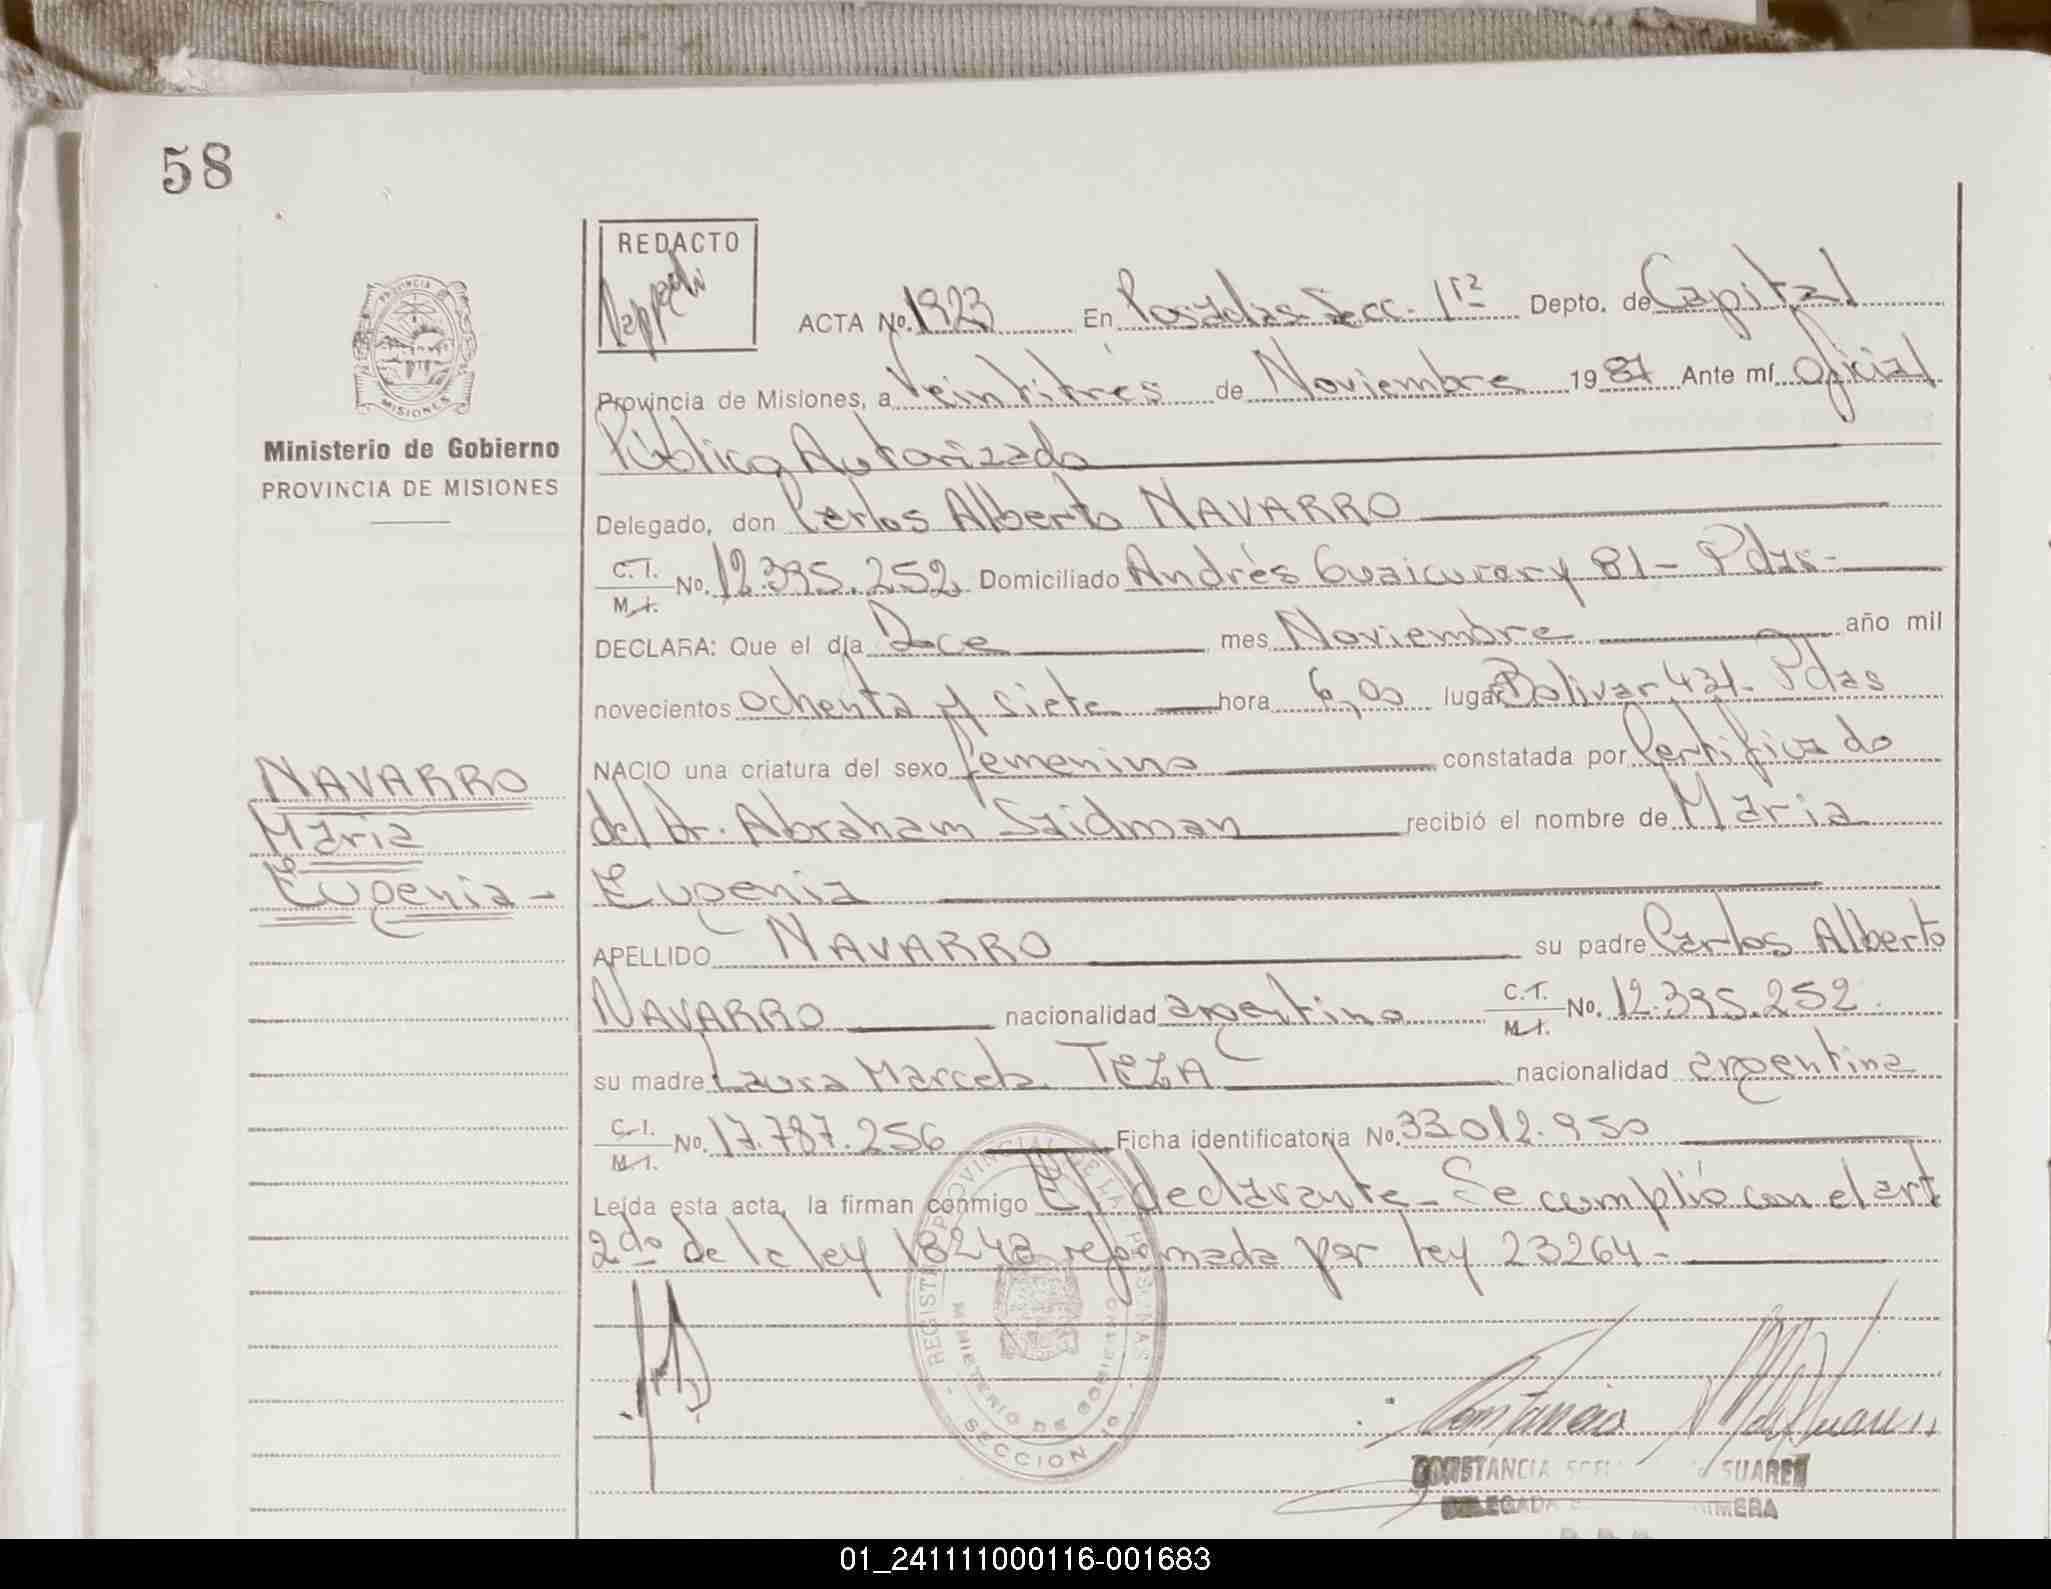 58
REDACTO
ACTA No. 1923 En Posadas Secc. 1ra Depto. de Capital
Provincia de Misiones, a Veintitrés de Noviembre 1987 Ante mí Oficial
Público Autorizado
Delegado, don Carlos Alberto NAVARRO
C.I. M.I. No. 12.395.252 Domiciliado Andrés Guaicurary 81 - Pdas -
DECLARA: Que el día Doce mes Noviembre año mil
novecientos ochenta y siete hora 6,00 lugar Bolivar 421- Pdas
NACIO una criatura del sexo femenino constatada por Certificado
del Dr. Abraham Saidman recibió el nombre de Maria
Eugenia
APELLIDO NAVARRO su padre Carlos Alberto
NAVARRO nacionalidad argentino C.I. M.I. No. 12.395.252
su madre Laura Marcela TEZA nacionalidad argentina
C.I. M.I. No. 17.787.256 Ficha identificatoria No. 33.012.950
Leída esta acta, la firman conmigo El declarante - Se cumplió con el art
2do de la ley 18248 reformada por ley 23264 -
PROVINCIA
MISIONES
Ministerio de Gobierno
PROVINCIA DE MISIONES
NAVARRO
Maria
Eugenia -
REGISTRO PROVINCIAL DE LAS PERSONAS
MINISTERIO DE GOBIERNO
SECCION 1º
Constancia
CONSTANCIA SUAREZ
DELEGADA PRIMERA
01_241111000116-001683